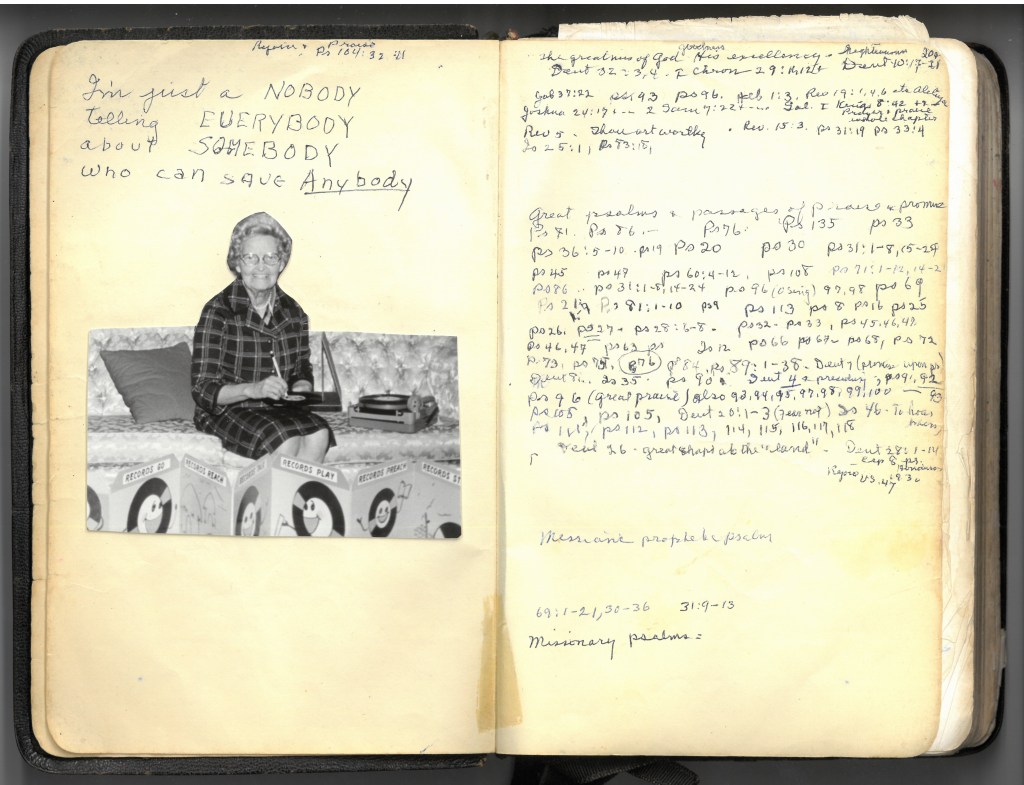 Rejoice & Praise
Ps 104:32-41
I'm just a NOBODY
telling EVERYBODY
about SOMEBODY
who can save Anybody
RECORDS GO
RECORDS REACH
RECORDS PLAY
RECORDS PREACH
RECORDS ST
goodness
the greatness of God His excellency -
Deut 32:3,4 - I Chron 29:10,12 Deut 10:17-21
Job 37:22 ps 93 ps 96. 1:3, Rev 19:1,4,6
Joshua 24:17 2 Sam 7:22 I Kings 8:42
Prayer & praise
whole chapter
Rev 5 - Thou art worthy . Rev. 15:3. ps 31:19 ps 33:4
Is 25:1, Ps 83:18,
Great psalms & passages of praise & promise
Ps 71. Ps 86. - Ps 76. Ps 135 ps 33
ps 36:5-10 ps 19 Ps 20 ps 30 ps 31:1-8, 15-24
ps 45 ps 47 ps 60:4-12, ps 108 ps 71:1-12, 14-2
Ps 86 .. ps 31:1-8, 14-24 ps 96 (a song) 97, 98 ps 69
Ps 21 Ps 81:1-10 ps 9 ps 113 ps 8 ps 16 ps 25
ps 26. ps 27 - ps 28:6-8 - ps 32 - ps 33, ps 45, 46, 47.
Ps 46, 47 ps 63 ps Is 12 ps 66 ps 67 ps 68, ps 72
ps 73, ps 75, ps 76 ps 84, ps 89:1-38. Deut 7 (promise upon
Deut 8. Is 35. ps 90. Deut 4 & preceding, ps 91, 92
ps 96 (Great praise) also 93, 94, 95, 97, 98, 99, 100 - 93
ps 103, ps 105, Deut 20:1-3 (fear not) Is 46 - To hoar
hairs,
Ps 111, ps 112, ps 113, 114, 115, 116, 117, 118
Deut 26 - great chapt abt the "land" - Deut 28:1-14
Rejoice vs. 47
Messianic prophetic psalm
69:1-21, 30-36 31:9-13
Missionary psalms =